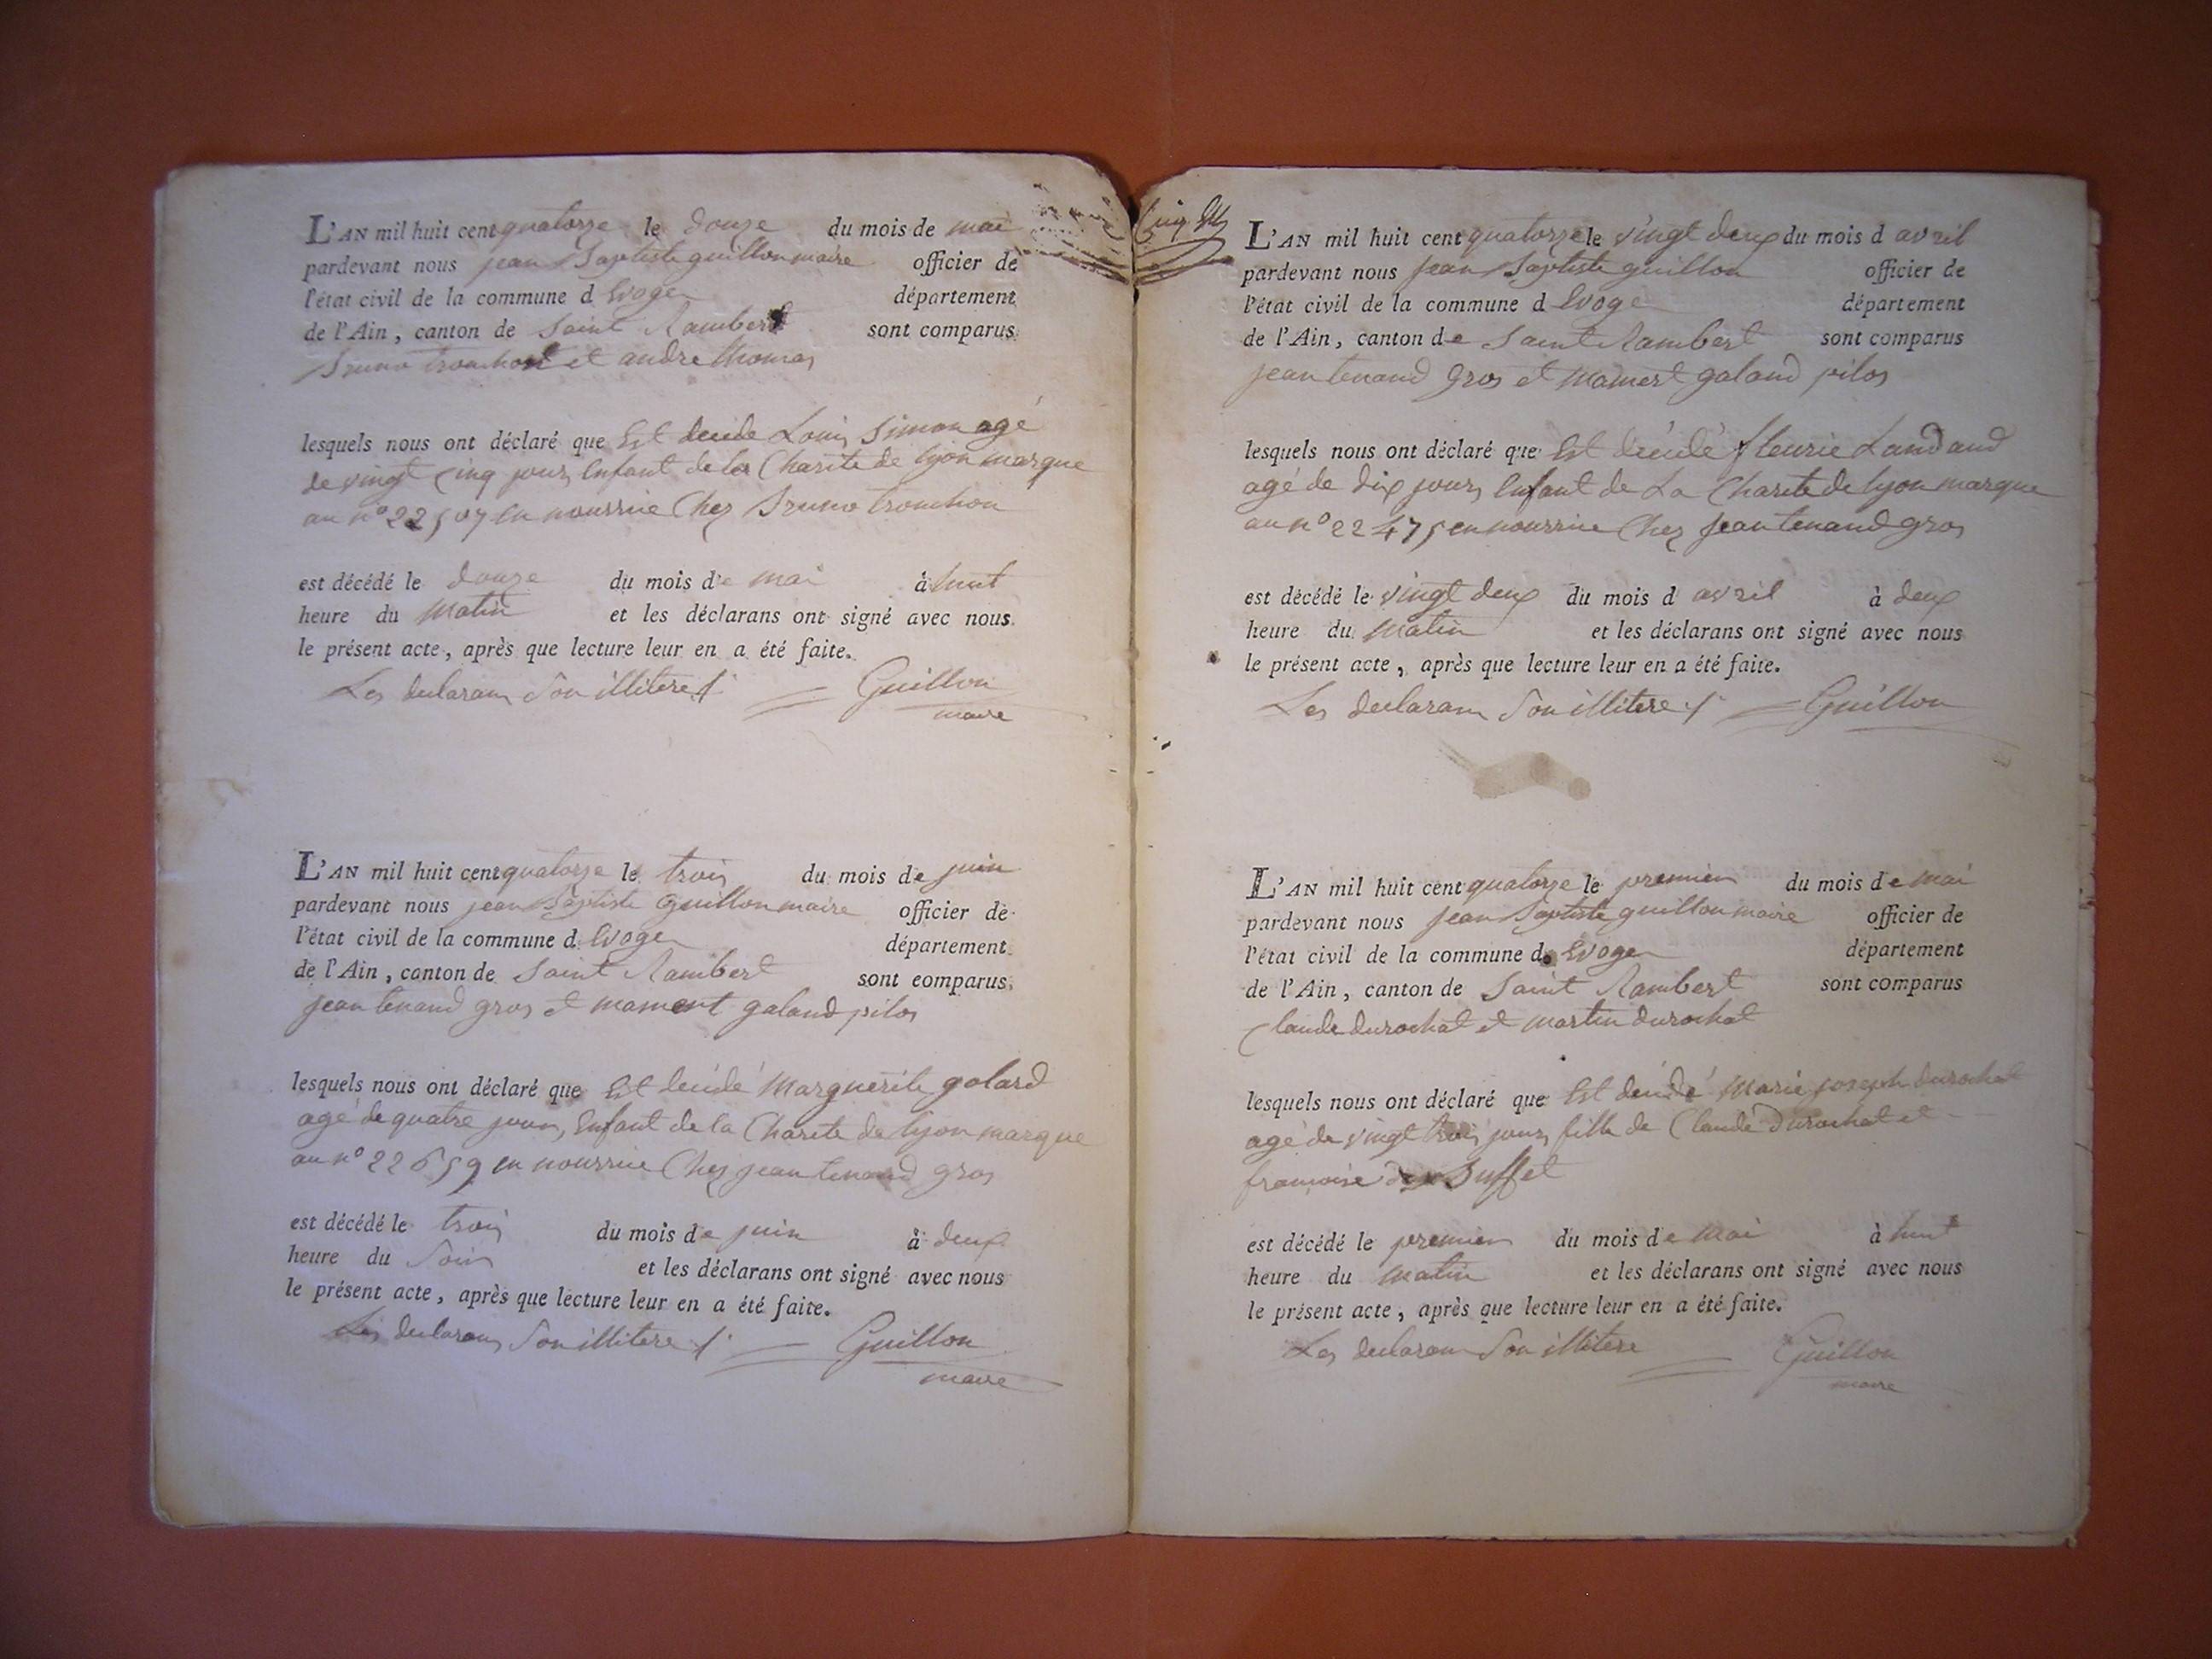 L'AN mil huit cent quatorze le douze du mois de mai
pardevant nous jean Baptiste guillon maire officier de
l'état civil de la commune d Evoges département
de l'Ain, canton de Saint Rambert sont comparus
Bruno tronchon et andre thomas
lesquels nous ont déclaré que Est decide Louis Simon agé
de vingt cinq jours Enfant de la Charite de lyon marque
au n° 22507 en nourrice Chez Bruno tronchon
est décédé le douze du mois de mai à huit
heure du Matin et les déclarans ont signé avec nous
le présent acte, après que lecture leur en a été faite.
Les declarans Son illitere Guillon
maire
L'AN mil huit cent quatorze le trois du mois de juin
pardevant nous jean Baptiste Guillon maire officier de
l'état civil de la commune d Evoges département
de l'Ain, canton de Saint Rambert sont comparus
jean tenand gros et mamert galand pilos
lesquels nous ont déclaré que Est decidé Marguerite galard
agé de quatre jours, Enfant de la Charite de lyon marque
au n° 22659 en nourrice Chez jean tenand gros
est décédé le trois du mois de juin à deux
heure du Soir et les déclarans ont signé avec nous
le présent acte, après que lecture leur en a été faite.
Les declarans Son illitere Guillon
maire
Cinq
L'AN mil huit cent quatorze le vingt deux du mois d avril
pardevant nous jean Baptiste guillon officier de
l'état civil de la commune d Evoge département
de l'Ain, canton de Saint Rambert sont comparus
jean tenand gros et Mamert galand pilos
lesquels nous ont déclaré que Est décidé fleurie Landaud
agé de dix jours Enfant de La Charite de lyon marque
au n° 22475 en nourrice Chez jean tenand gros
est décédé le vingt deux du mois d avril à deux
heure du Matin et les déclarans ont signé avec nous
le présent acte, après que lecture leur en a été faite.
Les declarans Son illitere Guillon
L'AN mil huit cent quatorze le premier du mois de mai
pardevant nous jean Baptiste guillon maire officier de
l'état civil de la commune d Evoges département
de l'Ain, canton de Saint Rambert sont comparus
Claude durochat et martin durochat
lesquels nous ont déclaré que Est décidé Marie joseph durochat
agé de vingt trois jours fille de Claude durochat et
francoise Buffet
est décédé le premier du mois de Mai à huit
heure du Matin et les déclarans ont signé avec nous
le présent acte, après que lecture leur en a été faite.
Les declarans Son illitere Guillon
maire